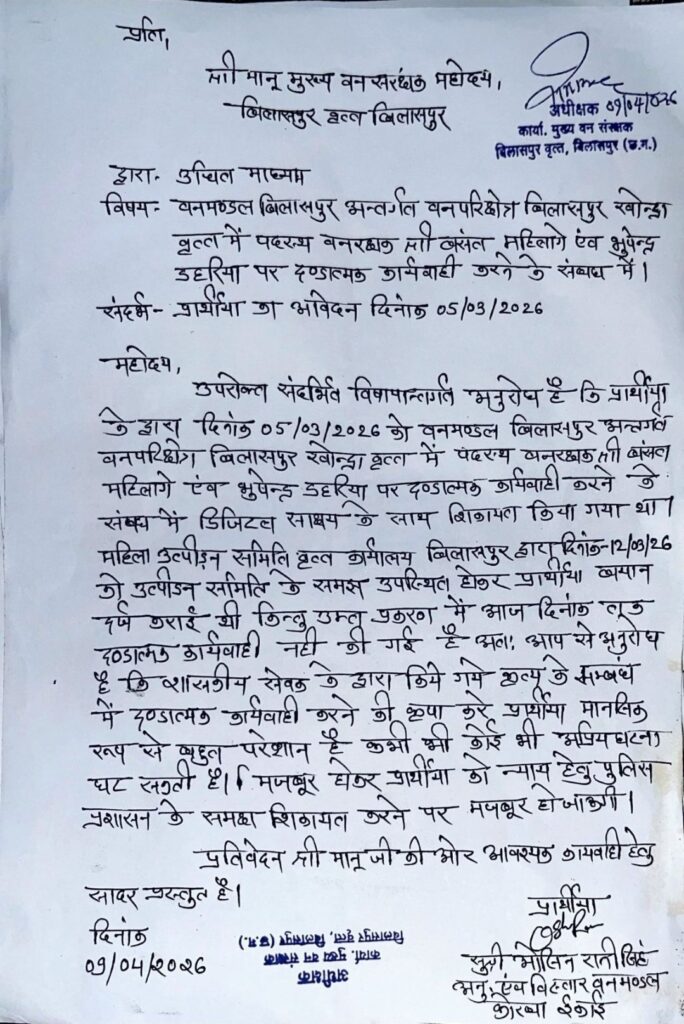 प्रति,
श्री मानू मुख्य वन संरक्षक महोदय,
बिलासपुर वृत्त बिलासपुर
अधीक्षक 09/04/026
कार्या. मुख्य वन संरक्षक
बिलासपुर वृत्त, बिलासपुर (छ.ग.)
द्वारा- उचित माध्यम
विषय- वनमण्डल बिलासपुर अन्तर्गत वनपरिक्षेत्र बिलासपुर खोन्द्रा
वृत्त में पदस्थ वनरक्षक श्री बंसल महिलांगे एंव भुपेन्द्र
डहरिया पर दण्डात्मक कार्यवाही करने के संबंध में।
संदर्भ- प्रार्थीया का आवेदन दिनांक 05/03/2026
महोदय,
उपरोक्त संदर्भित विषयान्तर्गत अनुरोध है कि प्रार्थीया
के द्वारा दिनांक 05/03/2026 को वनमण्डल बिलासपुर अन्तर्गत
वनपरिक्षेत्र बिलासपुर खोन्द्रा वृत्त में पदस्थ वनरक्षक श्री
एंव भुपेन्द्र डहरिया पर दण्डात्मक कार्यवाही करने के
संबंध में डिजिटल साक्ष्य के साथ शिकायत किया गया था।
महिला उत्पीडन समिति वृत्त कार्यालय बिलासपुर द्वारा दिनांक-12/03/26
को उत्पीडन समिति के समक्ष उपस्थित होकर प्रार्थीया बयान
दर्ज कराई थी किन्तु उक्त प्रकरण में आज दिनांक तक
दण्डात्मक कार्यवाही नही की गई है अतः आप से अनुरोध
है कि शासकीय सेवक के द्वारा किये गये कृत्य के सम्बंध
में दण्डात्मक कार्यवाही करने की कृपा करे प्रार्थीया मानसिक
रूप से बहुत परेशान है कभी भी कोई भी अप्रिय घटना
घट सकती है। मजबूर होकर प्रार्थीया को न्याय हेतु पुलिस
प्रशासन के समक्ष शिकायत करने पर मजबूर हो जाऊंगी।
प्रतिवेदन श्री मानू जी की ओर आवश्यक कार्यवाही हेतु
सादर प्रस्तुत है।
दिनांक
09/04/2026
अधीक्षक
कार्या. मुख्य वन संरक्षक
बिलासपुर वृत्त, बिलासपुर (छ.ग.)
प्रार्थीया
सुश्री
अनु. एंव विस्तार वनमण्डल
कोरबा ईकाई